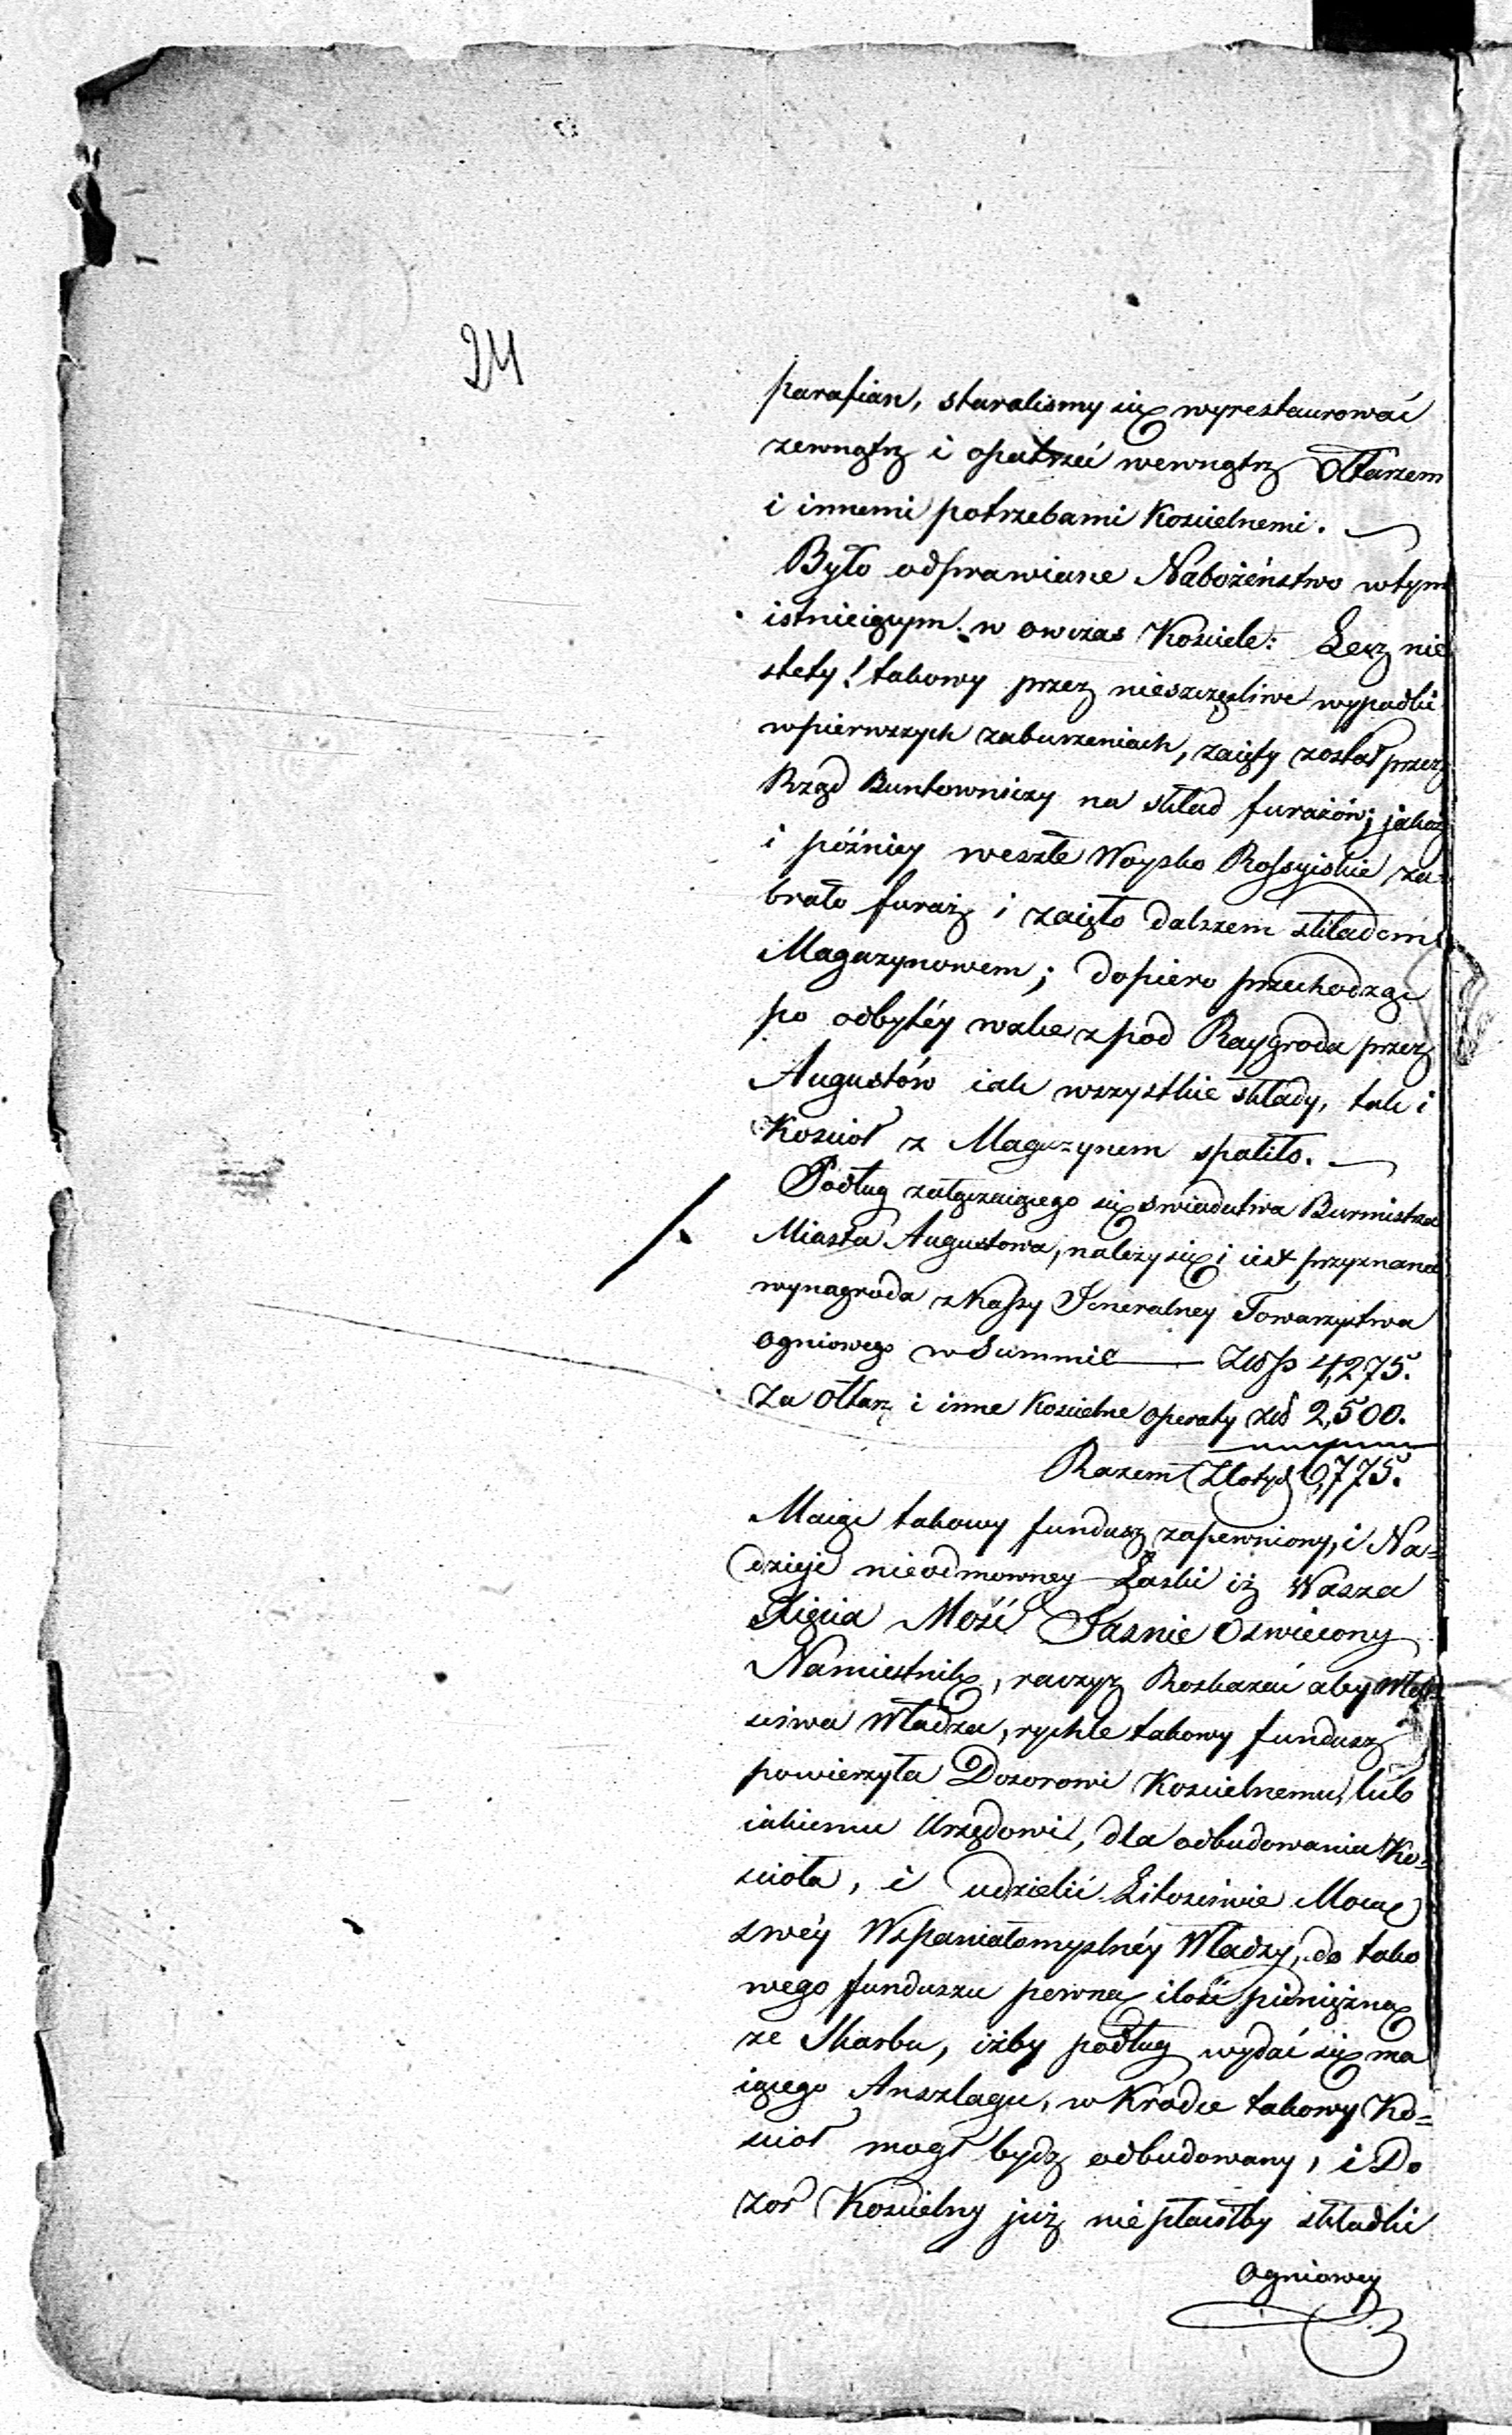 24
parafian, staralismy się wyrestaurować
zewnątrz i opatrzeć wewnątrz Ołtarzem
i innemi potrzebami Kościelnemi. —
Było odprawiane Nabożeństwo wtym
istnieiącym w owczas Kościele: Lecz nie
stety! takowy przez nieszczęśliwe wypadki
wpierwszych zaburzeniach, zaięty został przez
Rząd Buntowniczy na skład furażów; jakoż
i późniey weszłe Woysko Rossyiskie za-
brało furaż i zaięło dalszem składem
Magazynowem; dopiero przechodząc
po odbytéy walce z pod Raygroda przez
Augustów iak wszystkie składy, tak i
Koscioł z Magazynem spaliło. —
Podług załączaiącego się swiadectwa Burmistrza
Miasta Augustowa, należy się i iest przyznana
wynagroda z Kassy Jeneralney Towarzystwa
Ogniowego w Summie — Złp 4,275.
Za Ołtarz i inne Kościelne aperaty zł 2,500.
Razem Złotych 6,775.
Maiąc takowy fundusz zapewniony, i Na-
dzieje nieodmowney Łaski iż Wasza
Xiążęca Mość Jasnie Oswiecony
Namiestnik, raczysz Rozkazać aby Wła-
sciwa Władza, rychle takowy fundusz
powierzyła Dozorowi Kościelnemu, lub
iakiemu Urzędowi, dla odbudowania Ko-
scioła, i udzielić Litościwie Mocą
swéy Wspaniałomyslnéy Władzy, do tako
wego funduszu pewną ilość pieniężną
ze Skarbu, iżby podług wydać się ma
iącego Anszlagu, w Krodce takowy Ko-
scioł mogł bydź odbudowany, i Do
zor Kościelny już niepłaciłby składki
Ogniowey